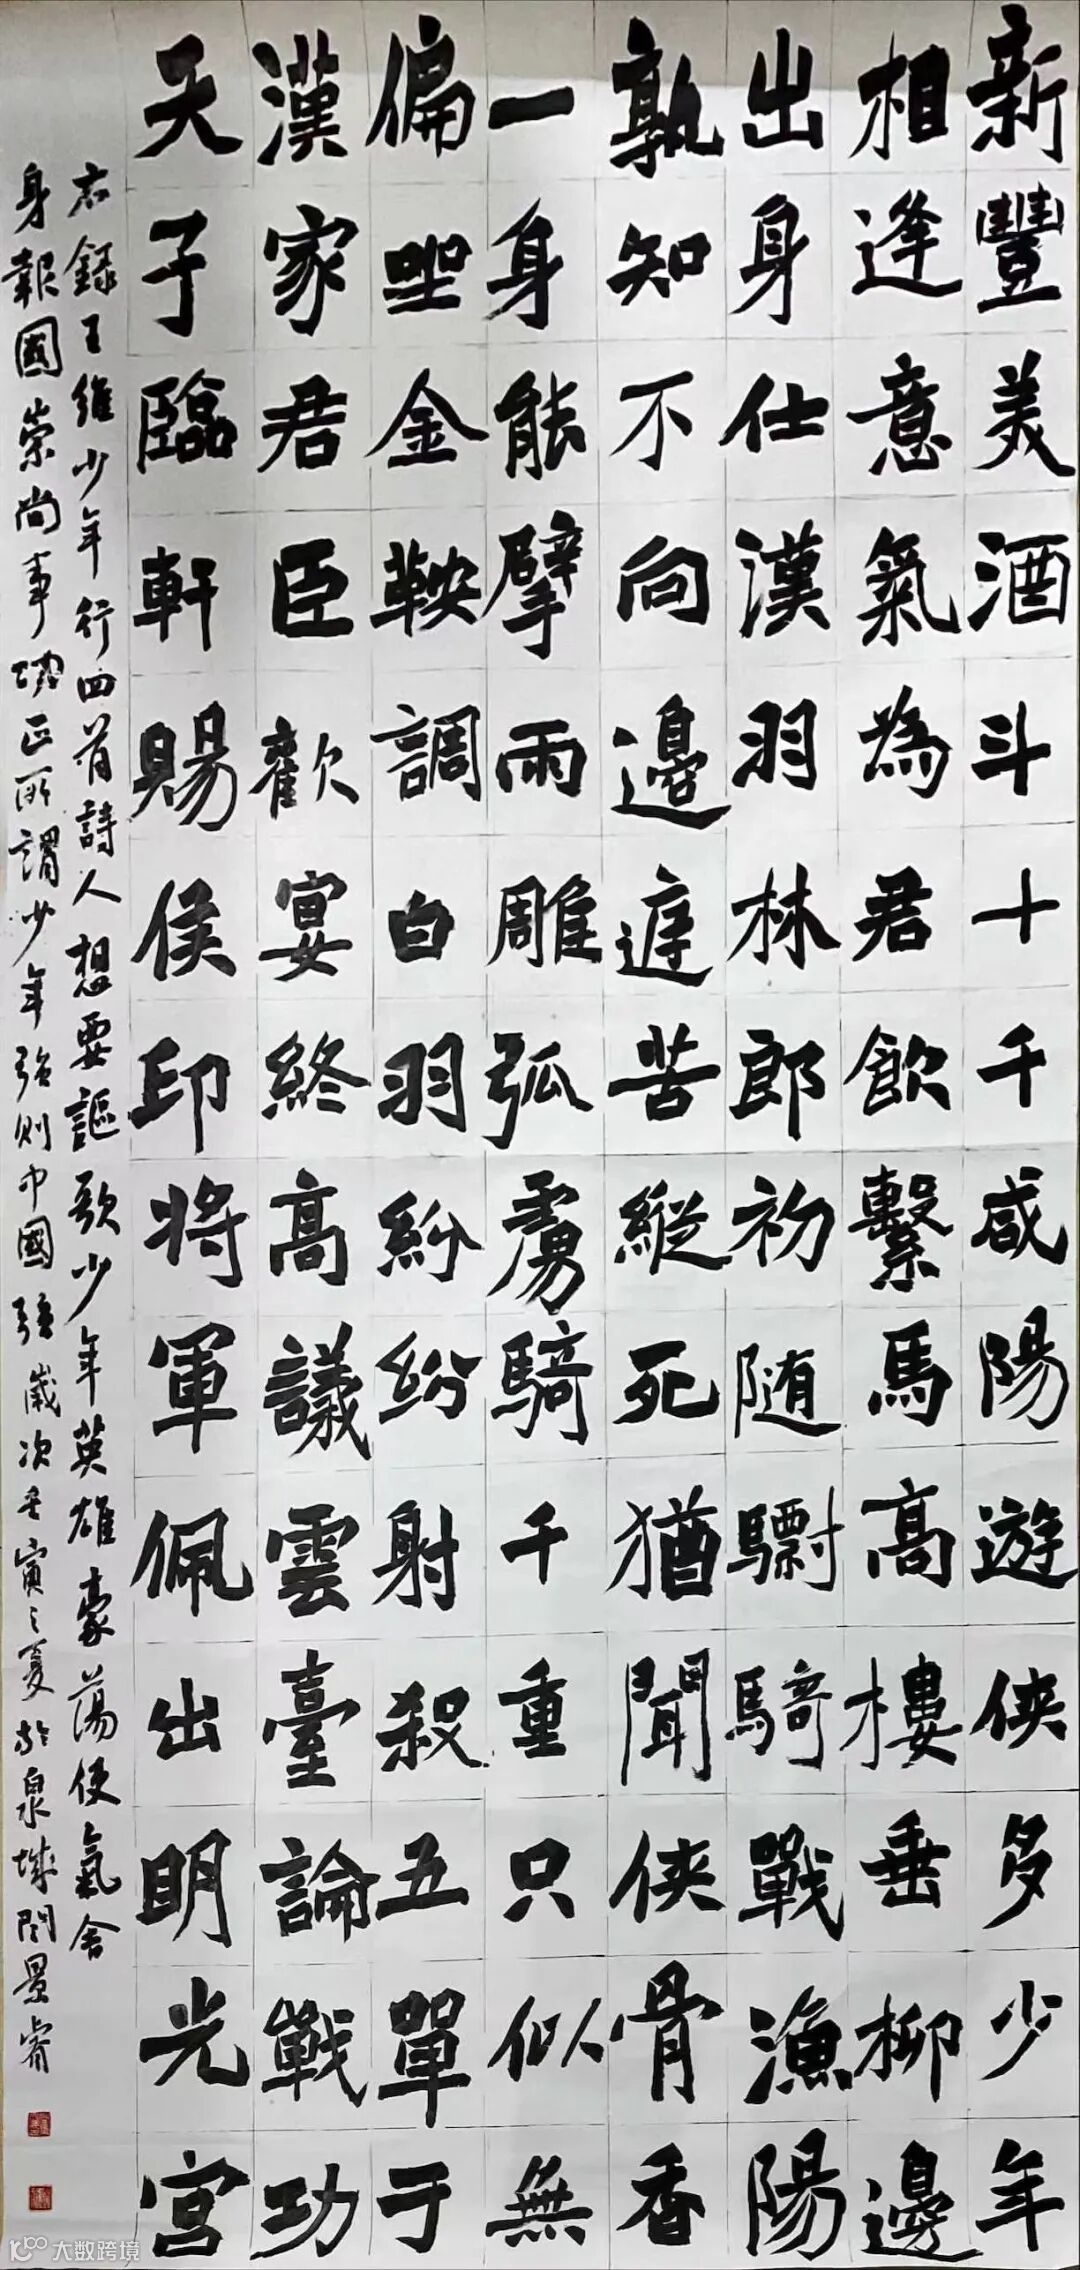 新豐美酒斗十千咸陽遊侠多少年
相逢意氣為君飲繫馬高樓垂柳邊
出身仕漢羽林郎初随驃騎戰漁陽
孰知不向邊庭苦縱死猶聞侠骨香
一身能擘雨雕弧虜騎千重只似無
偏坐金鞍調白羽紛紛射殺五單于
漢家君臣歡宴終高議雲臺論戰功
天子臨軒賜侯印将軍佩出明光宮
右錄王維少年行四首詩人想要謳歌少年英雄豪蕩使氣舍
身報國崇尚事功正所謂少年强則中國强歲次壬寅之夏於泉城閆景睿
大数跨境